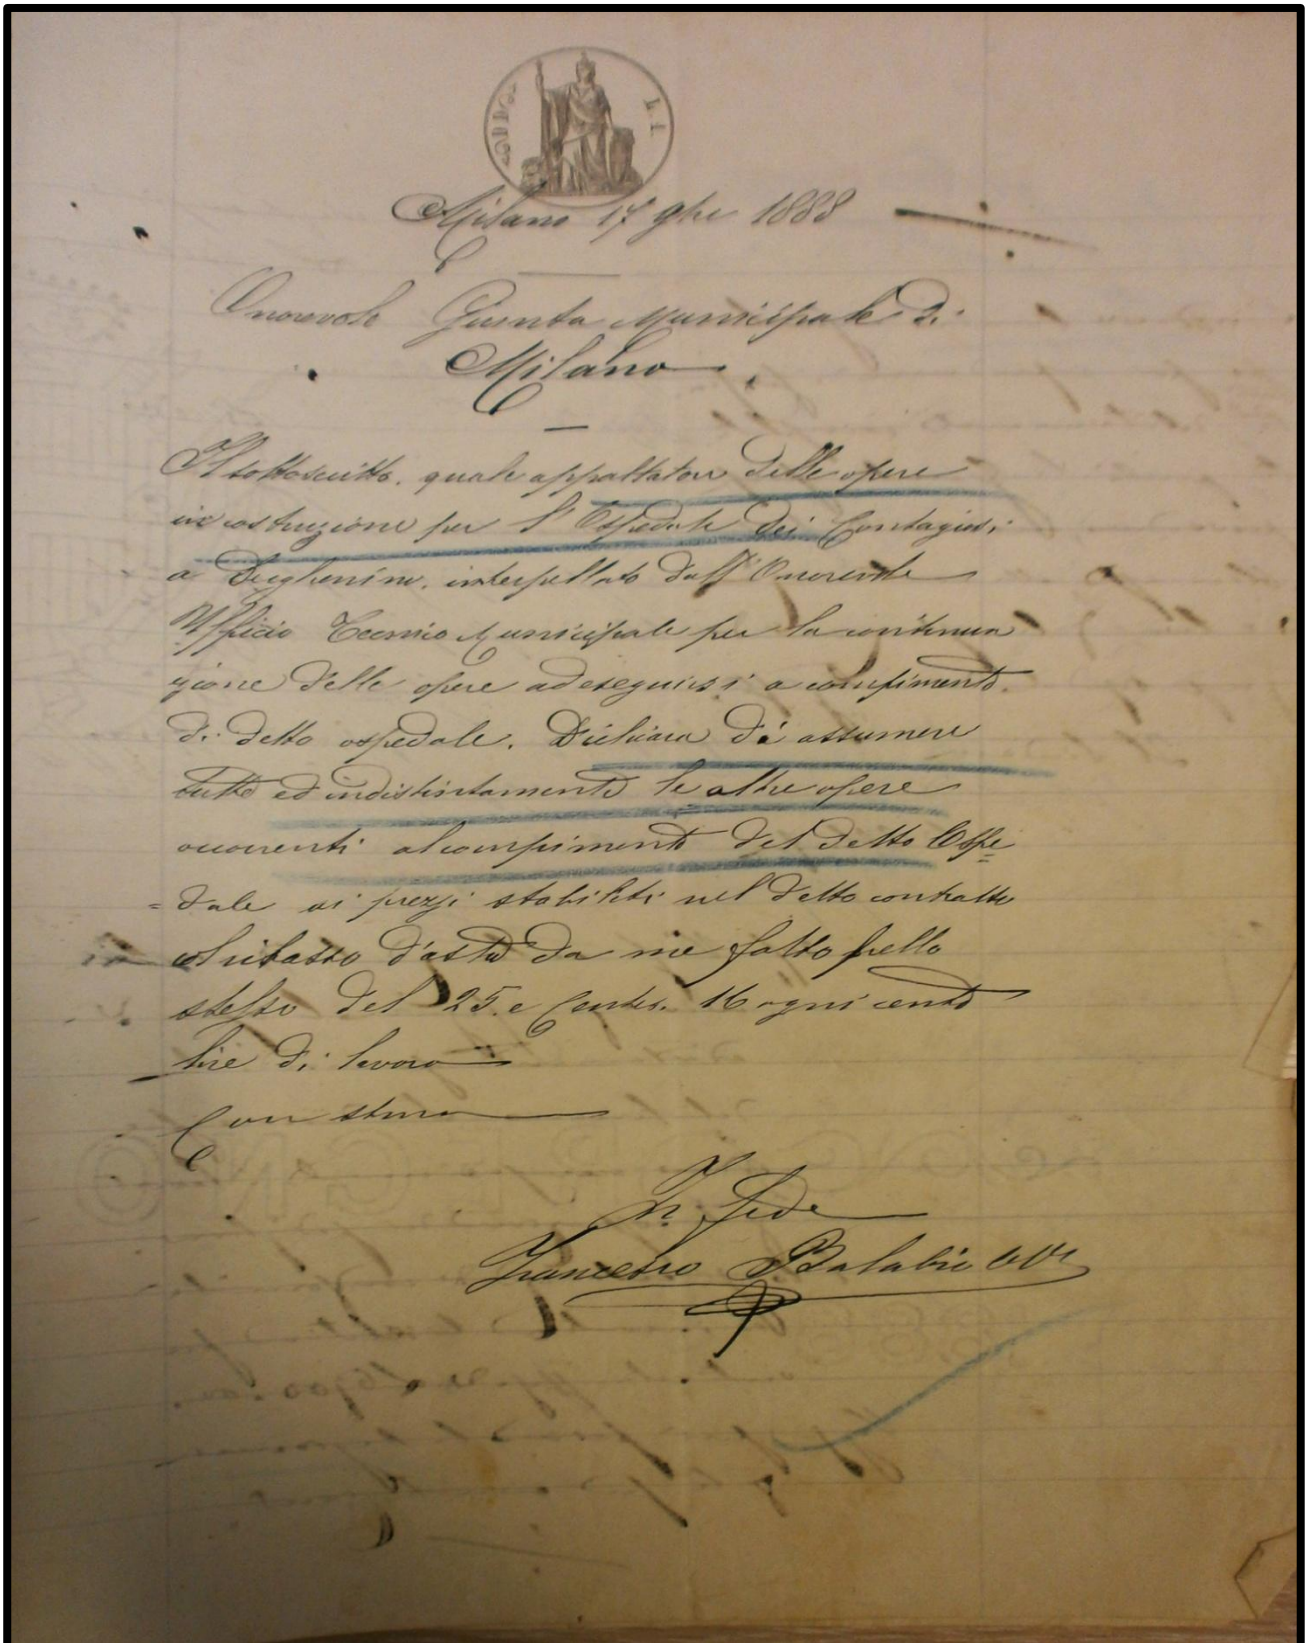 Milano 17 9bre 1888
Onorevole Giunta Municipale di
Milano
Il sottoscritto. quale appaltatore delle opere
in costruzione per l'Ospedale dei Contagiosi
a Derghenino. interpellato dall'Onorevole
Ufficio Tecnico Municipale per la continua
zione delle opere ad eseguirsi a compimento
di detto ospedale. Dichiara di assumere
tutte ed indistintamente le altre opere
occorenti al compimento del detto Ospe=
=dale ai prezzi stabiliti nel detto contratto
col ribasso d'asta da me fatto pello
stesso del 25. e Centes. 16 ogni cento
lire di lavoro
Con stima
In fede
Francesco Balabio